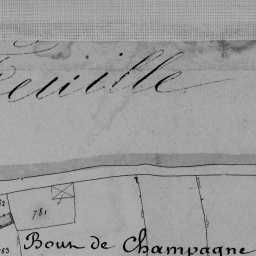 euille
781
83 Bour de Champagne